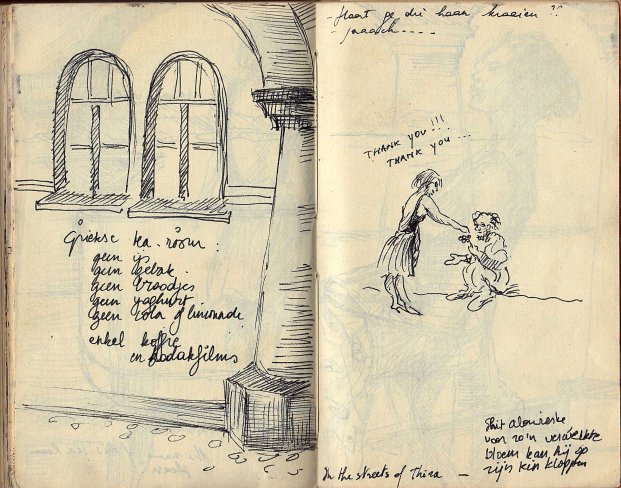 Griekse tea-room:
geen ijs
geen gebak.
geen broodjes
geen yoghurt
geen cola of limonade.
enkel koffie
en kodakfilms
- Hoort ge die haan kraaien ??
- jaaach----
THANK YOU!!!
THANK YOU...
voor zo'n verwelkte
bloem kan hij op
zijn kin kloppen
In the streets of Thira -